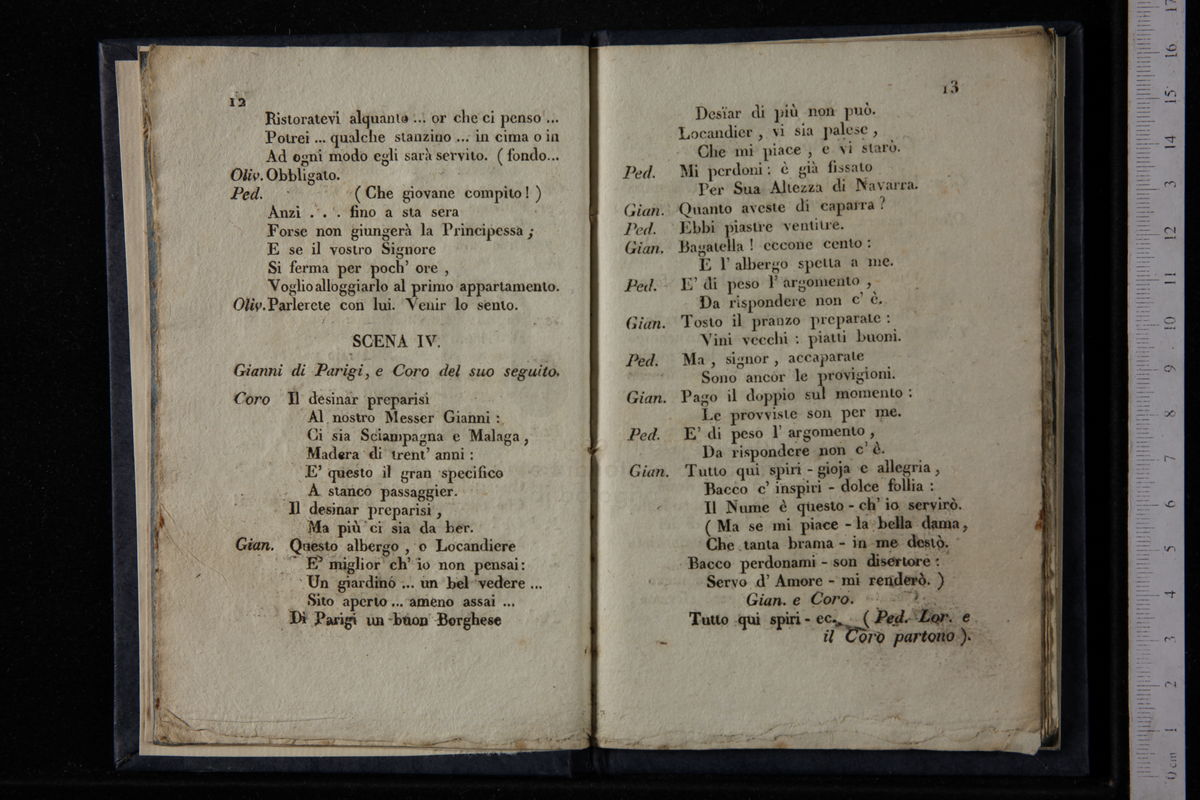 12
Ristoratevi alquanto ... or che ci penso ...
Potrei ... qualche stanzino ... in cima o in
Ad ogni modo egli sarà servito. ( fondo...
Oliv. Obbligato.
Ped. ( Che giovane compito ! )
Anzi . . . fino a sta sera
Forse non giungerà la Principessa ;
E se il vostro Signore
Si ferma per poch' ore ,
Voglio alloggiarlo al primo appartamento.
Oliv. Parlerete con lui. Venir lo sento.
SCENA IV.
Gianni di Parigi, e Coro del suo seguito.
Coro Il desinar preparisi
Al nostro Messer Gianni :
Ci sia Sciampagna e Malaga ,
Madera di trent' anni :
E' questo il gran specifico
A stanco passaggier.
Il desinar preparisi ,
Ma più ci sia da ber.
Gian. Questo albergo , o Locandiere
E' miglior ch' io non pensai :
Un giardino ... un bel vedere ...
Sito aperto ... ameno assai ...
Di Parigi un buon Borghese
13
Desïar di più non può.
Locandier , vi sia palese ,
Che mi piace , e vi starò.
Ped. Mi perdoni : è già fissato
Per Sua Altezza di Navarra.
Gian. Quanto aveste di caparra ?
Ped. Ebbi piastre ventitre.
Gian. Bagatella ! eccone cento :
E l' albergo spetta a me.
Ped. E' di peso l' argomento ,
Da rispondere non c' è.
Gian. Tosto il pranzo preparate :
Vini vecchi : piatti buoni.
Ped. Ma , signor , accaparate
Sono ancor le provigioni.
Gian. Pago il doppio sul momento :
Le provviste son per me.
Ped. E' di peso l' argomento ,
Da rispondere non c' è.
Gian. Tutto qui spiri - gioja e allegria ,
Bacco c' inspiri - dolce follia :
Il Nume è questo - ch' io servirò.
( Ma se mi piace - la bella dama ,
Che tanta brama - in me destò.
Bacco perdonami - son disertore :
Servo d' Amore - mi renderò. )
Gian. e Coro.
Tutto qui spiri - ec. ( Ped. Lor. e
il Coro partono ).
0 cm 1 2 3 4 5 6 7 8 9 10 11 12 13 14 15 16 17